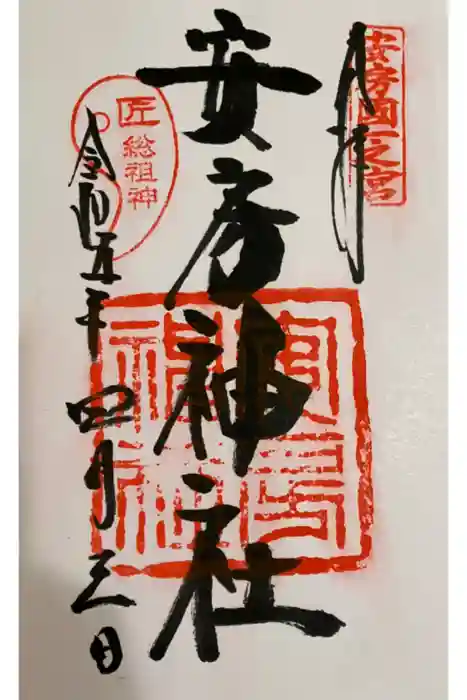 安房国一之宮
奉拝
安房神社
安房神社
匠
総祖神
令和五年四月三日